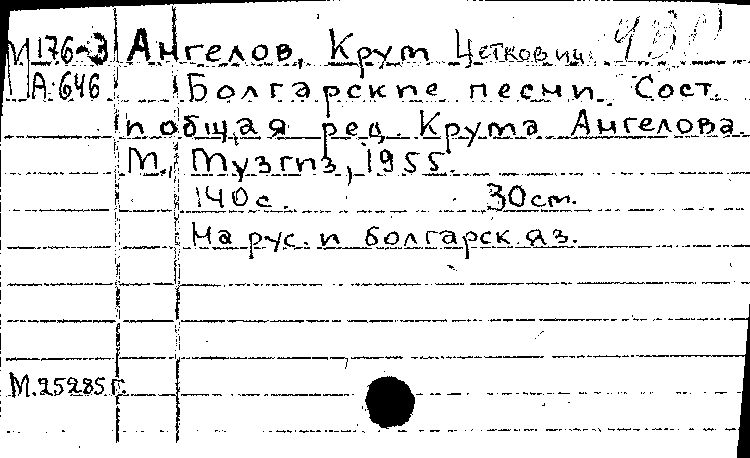 М 176-3 Ангелов, Крум Цеткович
А-646 Болгарские песни. Сост.
и общая ред. Крума Ангелова.
М., Музгиз, 1955.
140 с. 30 cm.
На рус. и болгарск. яз.
М.25285г.